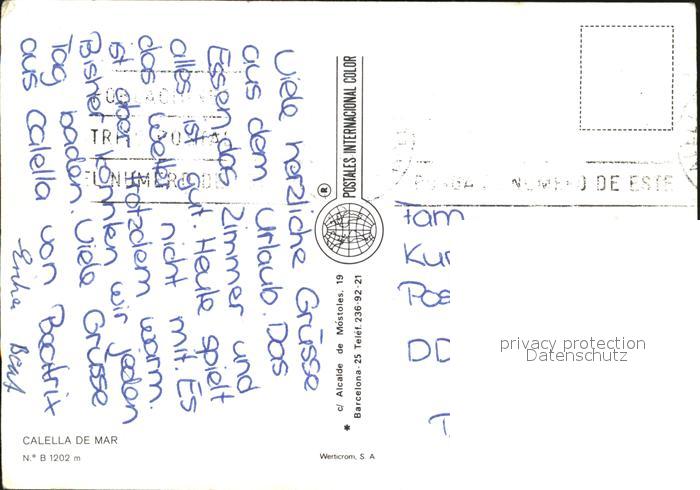 Viele herzliche Grüsse
aus dem Urlaub. Das
Essen das Zimmer und
alles ist gut. Heute spielt
das Wetter nicht mit. Es
ist aber trotzdem warm.
Bisher konnten wir jeden
Tag baden. Viele Grüsse
aus Calella von Beatrix
POSTALES INTERNACIONAL COLOR
®
c/ Alcalde de Móstoles, 19
* Barcelona-25 Teléf. 236-92-21
NUMERO DE ESTE
Fam
Ku
Pos
DD
T
privacy protection
Datenschutz
CALELLA DE MAR
N.° B 1202 m
Werticrom, S. A